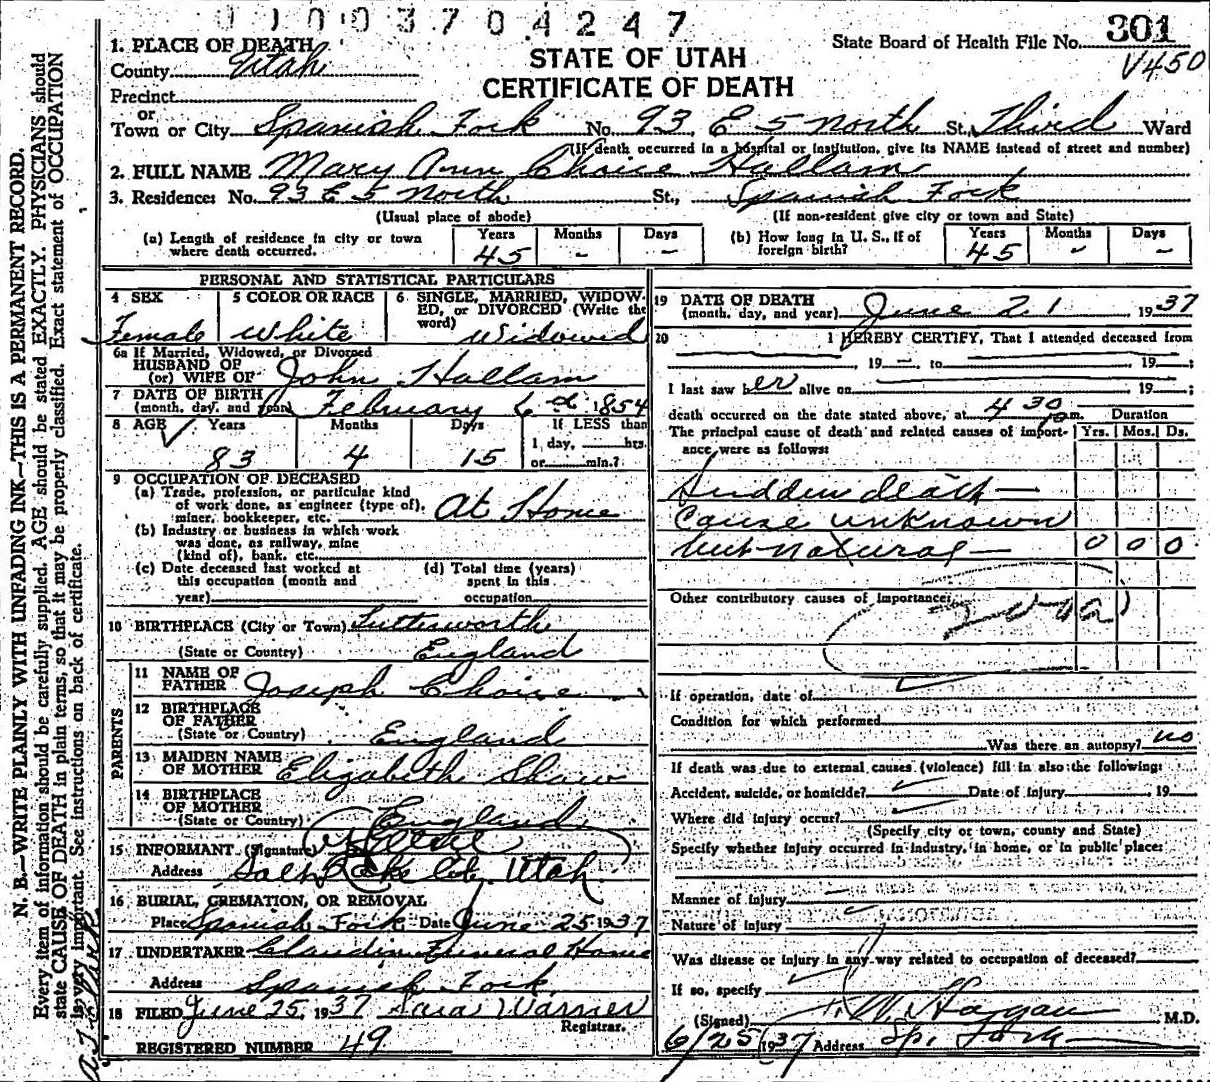 01003704247
301
State Board of Health File No.
V450
STATE OF UTAH
CERTIFICATE OF DEATH
1. PLACE OF DEATH
County Utah
Precinct
or
Town or City Spanish Fork No. 93 E 5 North St., Third Ward
(If death occurred in a hospital or institution, give its NAME instead of street and number)
2. FULL NAME Mary Ann Choice Hallam
3. Residences No. 93 E 5 North St., Spanish Fork
(Usual place of abode) (If non-resident give city or town and State)
(a) Length of residence in city or town where death occurred. Years 45 Months - Days -
(b) How long in U. S., if of foreign birth? Years 45 Months - Days -
PERSONAL AND STATISTICAL PARTICULARS
4 SEX Female
5 COLOR OR RACE White
6 SINGLE, MARRIED, WIDOWED, or DIVORCED (Write the word) Widowed
6a If Married, Widowed, or Divorced
HUSBAND OF
(or) WIFE OF John Hallam
7 DATE OF BIRTH
(month, day, and year) February 6 1854
8 AGE Years 83 Months 4 Days 15
If LESS than
1 day, hrs.
or min.?
9 OCCUPATION OF DECEASED
(a) Trade, profession, or particular kind
of work done, as engineer (type of),
miner, bookkeeper, etc. At Home
(b) Industry or business in which work
was done, as railway, mine
(kind of), bank, etc.
(c) Date deceased last worked at
this occupation (month and
year)
(d) Total time (years)
spent in this
occupation
10 BIRTHPLACE (City or Town) Lutterworth
(State or Country) England
PARENTS
11 NAME OF
FATHER Joseph Choice
12 BIRTHPLACE
OF FATHER
(State or Country) England
13 MAIDEN NAME
OF MOTHER Elizabeth Shaw
14 BIRTHPLACE
OF MOTHER
(State or Country) England
15 INFORMANT (Signature)
Address Salt Lake City, Utah
16 BURIAL, CREMATION, OR REMOVAL
Place Spanish Fork Date June 25 1937
17 UNDERTAKER Claudin Funeral Home
Address Spanish Fork
18 FILED June 25, 1937 Sara Warner
Registrar.
REGISTERED NUMBER 49
19 DATE OF DEATH
(month, day, and year) June 21 1937
20 I HEREBY CERTIFY, That I attended deceased from
, 19 —, to , 19 ;
I last saw her alive on 19 ;
death occurred on the date stated above, at 4 30 pm. Duration
The principal cause of death and related causes of importance were as follows: Yrs. Mos. Ds.
Sudden death —
Cause unknown
but natural — 0 0 0
Other contributory causes of importance:
200a
If operation, date of
Condition for which performed
Was there an autopsy? no
If death was due to external causes (violence) fill in also the following:
Accident, suicide, or homicide? Date of injury 19
Where did injury occur?
(Specify city or town, county and State)
Specify whether injury occurred in industry, in home, or in public place:
Manner of injury
Nature of injury
Was disease or injury in any way related to occupation of deceased?
If so, specify
(Signed) Hagan M.D.
6/25 1937 Address Sp. Fork
N. B.—WRITE PLAINLY WITH UNFADING INK—THIS IS A PERMANENT RECORD.
Every item of information should be carefully supplied. AGE should be stated EXACTLY. PHYSICIANS should
state CAUSE OF DEATH in plain terms, so that it may be properly classified. Exact statement of OCCUPATION
is very important. See instructions on back of certificate.